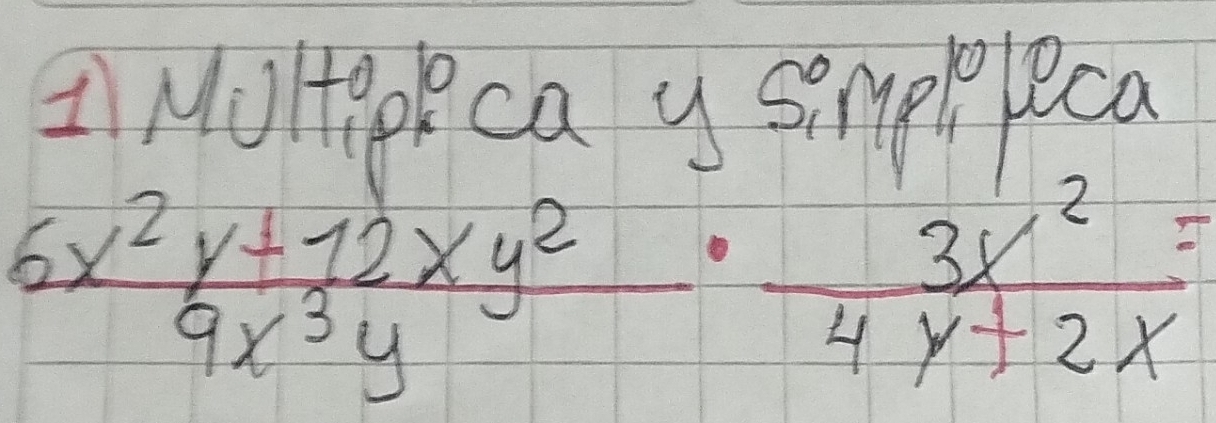 1) Multiplica y Simplifica
6x² y + 12xy² • 3x² =
9x³y 4y + 2x